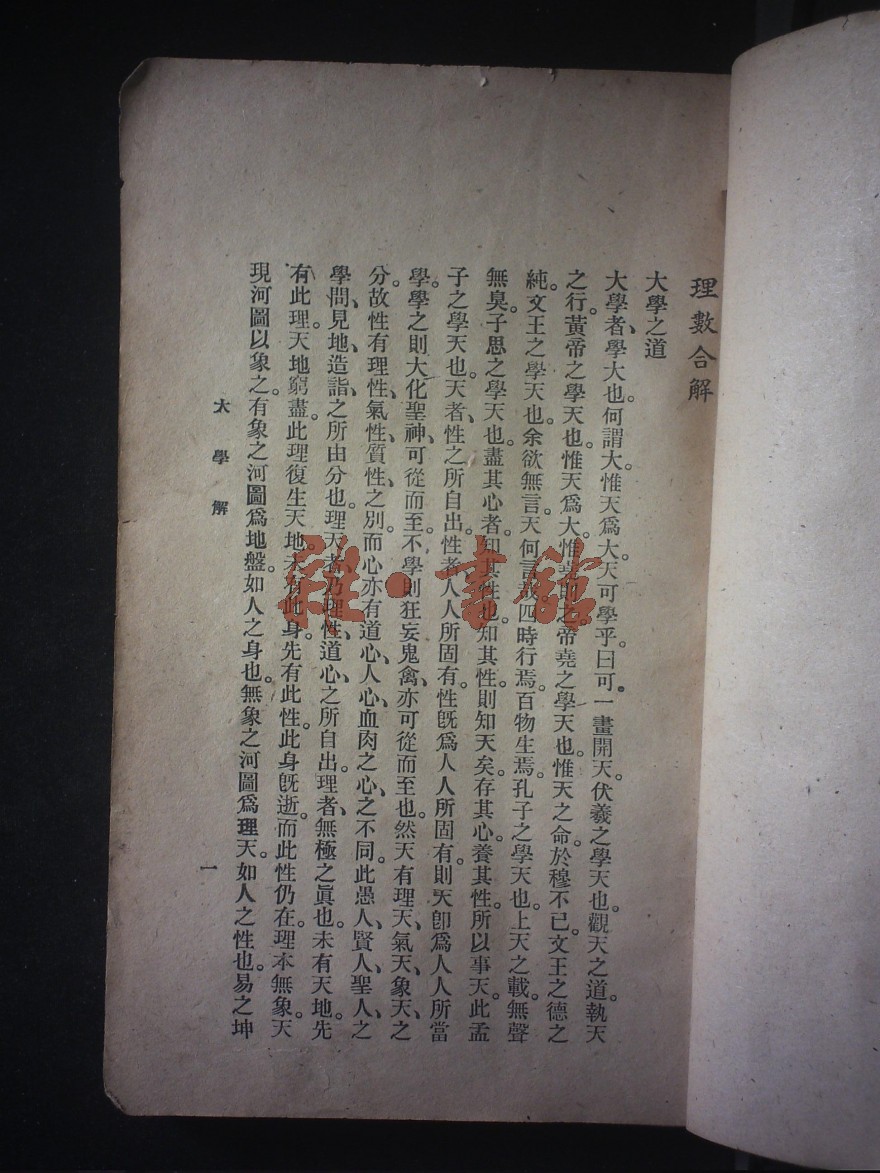 理數合解
大學之道
大學者、學大也。何謂大。惟天爲大。天可學乎。曰可。一畫開天。伏羲之學天也。觀天之道。執天
之行。黃帝之學天也。惟天爲大。惟堯則之。帝堯之學天也。惟天之命。於穆不已。文王之德之
純。文王之學天也。余欲無言。天何言哉。四時行焉。百物生焉。孔子之學天也。上天之載。無聲
無臭。子思之學天也。盡其心者。知其性也。知其性。則知天矣。存其心。養其性。所以事天。此孟
子之學天也。天者、性之所自出。性者、人人所固有。性旣爲人人所固有。則天卽爲人人所當
學。學之則大化聖神、可從而至。不學則狂妄鬼禽、亦可從而至也。然天有理天、氣天、象天、之
分。故性有理性、氣性、質性、之別。而心亦有道心、人心、血肉之心、之不同。此愚人、賢人、聖人、之
學問、見地、造詣、之所由分也。理天者、乃理性、道心、之所自出。理者、無極之眞也。未有天地。先
有此理。天地窮盡。此理復生天地。未有此身。先有此性。此身旣逝。而此性仍在。理本無象。天
現河圖以象之。有象之河圖爲地盤。如人之身也。無象之河圖爲理天。如人之性也。易之坤
大學解
一
雜·書館